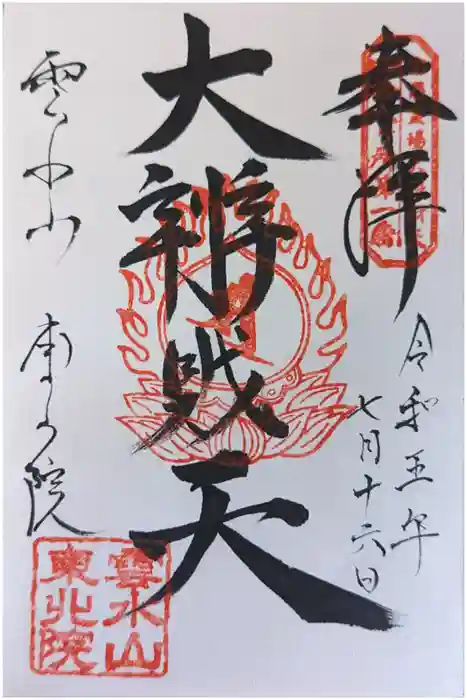 奉拝
令和五年
七月十六日
大辨財天
雲水山
東北院
雲水山
東北院